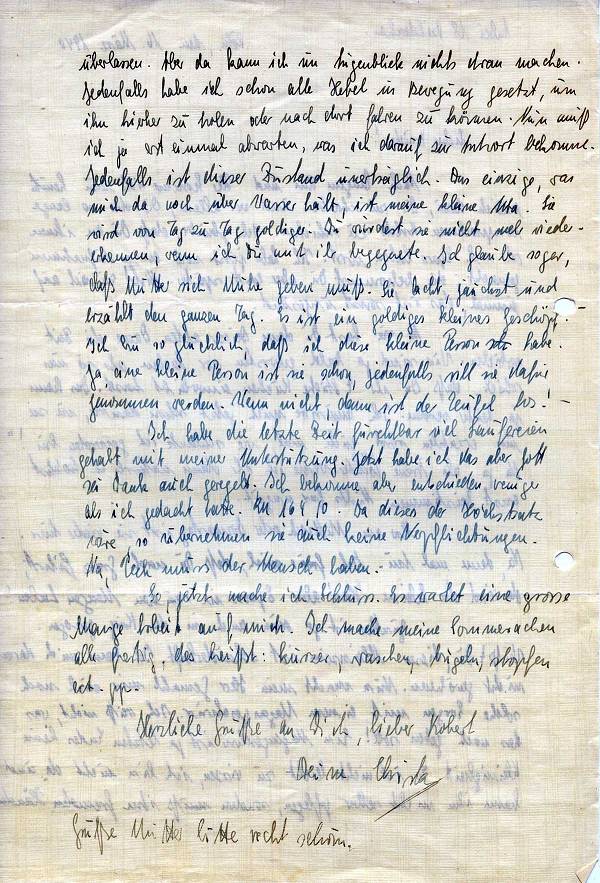 überlassen. Aber da kann ich im Augenblick nichts dran machen.
Jedenfalls habe ich schon alle Hebel in Bewegung gesetzt, um
ihn hierher zu holen oder nach dort fahren zu können. Nun muß
ich ja erst einmal abwarten, was ich darauf zur Antwort bekomme.
Jedenfalls ist dieser Zustand unerträglich. Das einzige, was
mich da noch über Wasser hält, ist meine kleine Uta. Sie
wird von Tag zu Tag goldiger. Du würdest sie nicht mehr wieder-
erkennen, wenn ich Dir mit ihr begegnete. Ich glaube sogar,
daß Mutter sich Mühe geben muß. Sie lacht, jauchzt und
erzählt den ganzen Tag. Es ist ein goldiges kleines Geschöpf.-
Ich bin so glücklich, daß ich diese kleine Person habe.
Ja eine kleine Person ist sie schon, jedenfalls will sie dafür
genommen werden. Wenn nicht, dann ist der Teufel los! -
Ich habe die letzte Zeit furchtbar viel Laufereien
gehabt mit meiner Unterstützung. Jetzt habe ich das aber Gott
sei Dank auch geregelt. Ich bekomme aber entschieden weniger
als ich gedacht hatte. Da dieses der Höchstsatz
wäre so übernehmen sie auch keine Verpflichtungen.
Na, Pech muss der Mensch haben.-
So, jetzt mache ich Schluss. Es wartet eine grosse
Menge Arbeit auf mich. Ich mache meine Sommersachen
alle fertig, das heißt: kürzer, waschen, bügeln, stopfen
ect. pp.
Herzliche Grüße an Dich, lieber Robert
Deine Christa
Grüße Mutter bitte recht schön.